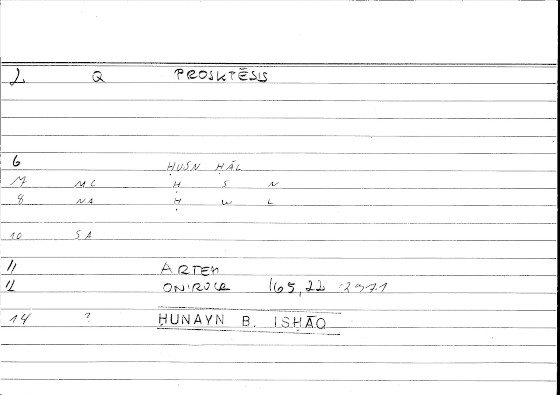 2 Q PROSKTĒSIS
6 ḤUSN ḤĀL
7 MC Ḥ S N
8 NA Ḥ W L
10 SA
11 ARTEM
12 ONIROCR 165,22
14 ? ḤUNAYN B. ISḤĀQ